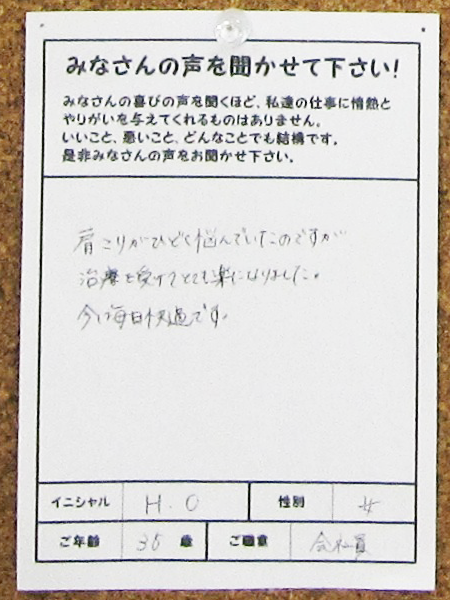 みなさんの声を聞かせて下さい!
みなさんの喜びの声を聞くほど、私達の仕事に情熱と
やりがいを与えてくれるものはありません。
いいこと、悪いこと、どんなことでも結構です。
是非みなさんの声をお聞かせ下さい。
肩こりがひどく悩んでいたのですが
治療を受けてとても楽になりました。
今は毎日快適です。
イニシャル H.O 性別 女
ご年齢 35 歳 ご職業 会社員